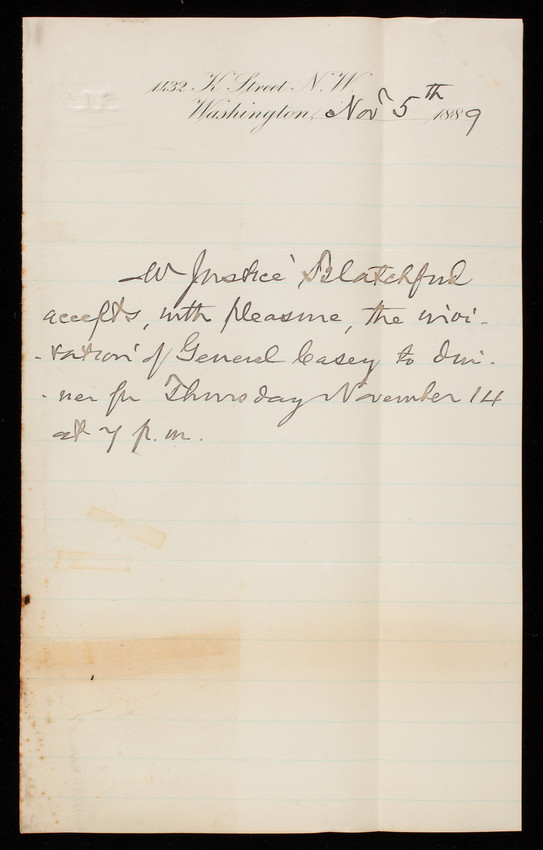 1432 K Street N.W.
Washington, Nov 5th 1889
Mr Justice Blatchford
accepts, with pleasure, the invi-
-tation of General Casey to din-
-ner for Thursday November 14
at 7 p.m.